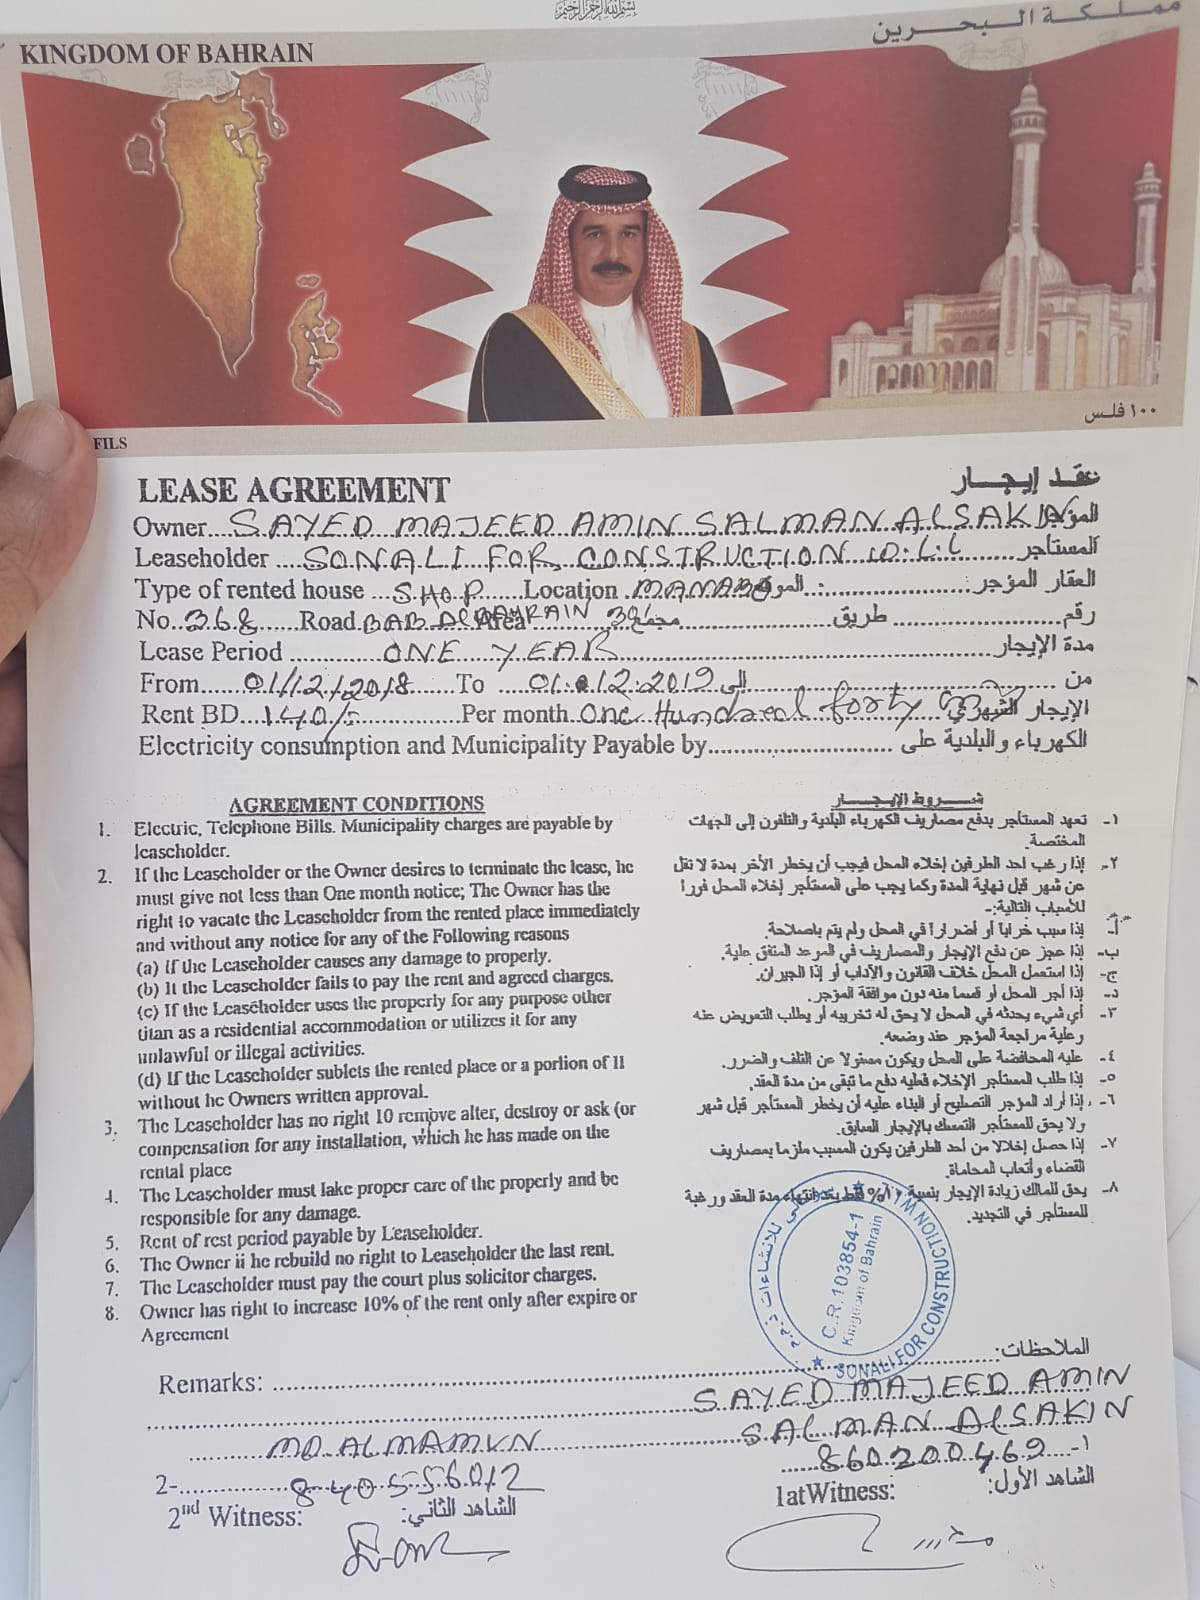 بسم الله الرحمن الرحيم
KINGDOM OF BAHRAIN
مملكة البحرين
FILS
١٠٠ فلس
LEASE AGREEMENT
عقد إيجار
Owner SAYED MAJEED AMIN SALMAN ALSAKIN المؤجر
Leaseholder SONALI FOR CONSTRUCTION W.L.L المستأجر
Type of rented house SHOP Location MANAMA الموقع العقار المؤجر
No. 368 Road BAB AL BAHRAIN Area مجمع طريق رقم
Lease Period ONE YEAR مدة الإيجار
From 01/12/2018 To 01.12.2019 إلى من
Rent BD 140/- Per month One Hundred forty الإيجار الشهري
Electricity consumption and Municipality Payable by الكهرباء والبلدية على
AGREEMENT CONDITIONS
1. Electric, Telephone Bills. Municipality charges are payable by
leascholder.
2. If the Leascholder or the Owner desires to terminate the lease, he
must give not less than One month notice; The Owner has the
right to vacate the Leascholder from the rented place immediately
and without any notice for any of the Following reasons
(a) If the Leascholder causes any damage to properly.
(b) It the Leascholder fails to pay the rent and agreed charges.
(c) If the Leascholder uses the properly for any purpose other
titan as a residential accommodation or utilizes it for any
unlawful or illegal activities.
(d) If the Leascholder sublets the rented place or a portion of 11
without hc Owners written approval.
3. The Leascholder has no right 10 remove alter, destroy or ask (or
compensation for any installation, which he has made on the
rental place
4. The Leascholder must lake proper care of the properly and be
responsible for any damage.
5. Rent of rest period payable by Leaseholder.
6. The Owner ii he rebuild no right to Leaseholder the last rent.
7. The Leascholder must pay the court plus solicitor charges.
8. Owner has right to increase 10% of the rent only after expire or
Agreement
شروط الإيجار
١- تعهد المستأجر بدفع مصاريف الكهرباء البلدية والتلفون إلى الجهات
المختصة.
٢- إذا رغب احد الطرفين إخلاء المحل فيجب أن يخطر الأخر بمدة لا تقل
عن شهر قبل نهاية المدة وكما يجب على المستأجر إخلاء المحل فورا
للأسباب التالية:-
أ- إذا سبب خراباً أو أضراراً في المحل ولم يتم باصلاحة.
ب- إذا عجز عن دفع الإيجار والمصاريف في الموعد المتفق علية.
ج- إذا استعمل المحل خلاف القانون والآداب أو إذا الجيران.
د- إذا أجر المحل أو قسماً منه دون موافقة المؤجر.
٣- أي شيء يحدثه في المحل لا يحق له تخريبه أو يطلب التعويض عنه
وعلية مراجعة المؤجر عند وضعه.
٤- عليه المحافضة على المحل ويكون مسئولا عن التلف والضرر.
٥- إذا طلب المستأجر الإخلاء فعليه دفع ما تبقى من مدة العقد.
٦- إذا أراد المؤجر التصليح أو البناء عليه أن يخطر المستأجر قبل شهر
ولا يحق للمستأجر التمسك بالإيجار السابق.
٧- إذا حصل إخلالا من أحد الطرفين يكون المسبب ملزماً بمصاريف
القضاء وأتعاب المحاماة.
٨- يحق للمالك زيادة الإيجار بنسبة ١٠% فقط بعد انتهاء مدة العقد ورغبة
للمستأجر في التجديد.
سونالي للانشاءات ذ.م.م
C.R. 103854-1
Kingdom of Bahrain
SONALI FOR CONSTRUCTION W.L.L
Remarks: الملاحظات:
SAYED MAJEED AMIN
MD. ALMAMUN SALMAN ALSAKIN
2- 840556012 860200469 -1
2nd Witness: الشاهد الثاني: 1atWitness: الشاهد الأول: